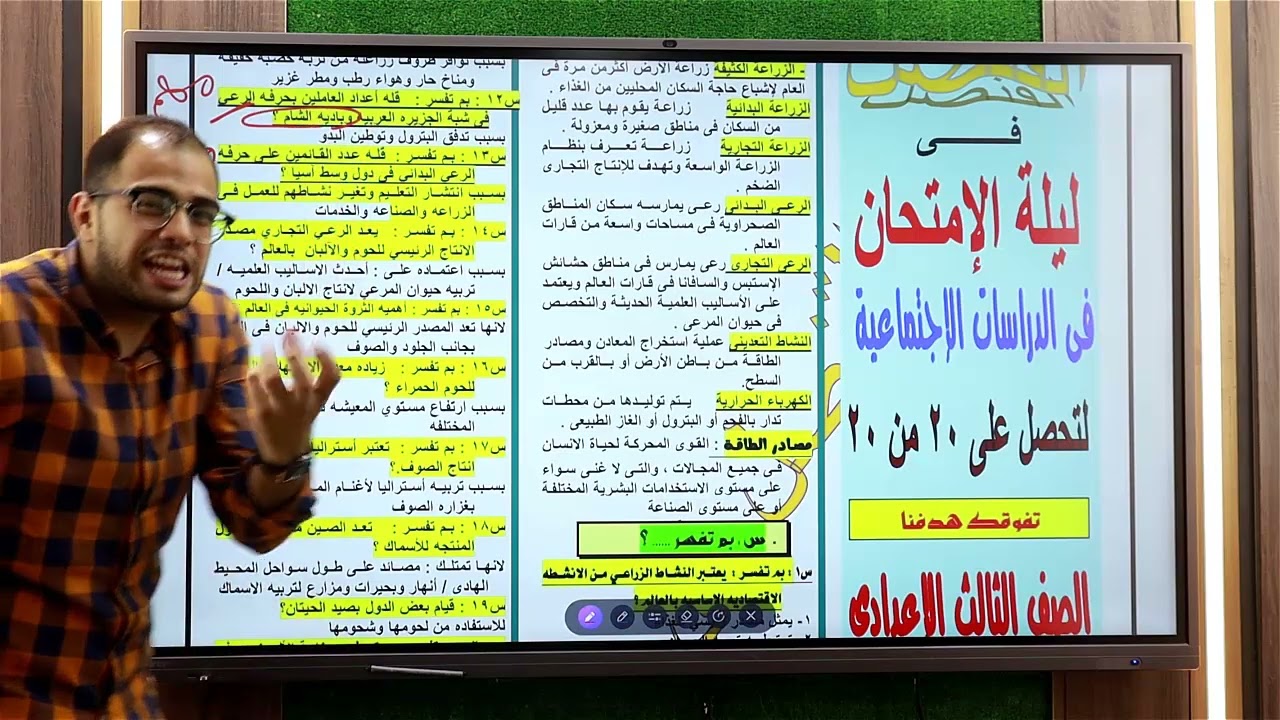 القنصل
فى
ليلة الإمتحان
فى الدراسات الإجتماعية
لتحصل على ٢٠ من ٢٠
تفوقك هدفنا
الصف الثالث الاعدادى
- الزراعة الكثيفة زراعة الأرض أكثرمن مرة فى
العام لإشباع حاجة السكان المحليين من الغذاء .
الزراعة البدائية زراعة يقوم بها عدد قليل
من السكان فى مناطق صغيرة ومعزولة .
الزراعة التجارية زراعـــة تعـــرف بنظـــام
الزراعة الواسعة وتهدف للإنتاج التجارى
الضخم .
الرعى البدائى رعـى يمارسـه سـكان المنـاطق
الصحراوية فى مساحات واسعة من قارات
العالم .
الرعى التجارى رعى يمارس فى مناطق حشائش
الإستبس والسافانا فى قارات العالم ويعتمد
على الأساليب العلمية الحديثة والتخصص
فى حيوان المرعى .
النشاط التعدينى عملية استخراج المعادن ومصادر
الطاقـة مـن بـاطن الأرض أو بـالقرب مـن
السطح.
الكهرباء الحرارية يـتم توليـدها مـن محطـات
تدار بالفحم أو البترول أو الغاز الطبيعى .
مصادر الطاقة : القوى المحركة لحياة الانسان
فى جميع المجالات ، والتى لا غنى سواء
على مستوى الاستخدامات البشرية المختلفة
أو على مستوى الصناعة
. س. بم تفسر ..... ؟
س١ : بم تفسر : يعتبر النشاط الزراعي من الانشطه
الاقتصاديه الاساسيه بالعالم؟
١- يمثل
ومناخ حار وهواء رطب ومطر غزير
س١٢ : بم تفسر : قله أعداد العاملين بحرفه الرعي
فى شبة الجزيره العربيه وباديه الشام ؟
بسبب تدفق البترول وتوطين البدو
س١٣ : بم تفسر : قله عدد القائمين على حرفه
الرعي البدائي في دول وسط أسيا ؟
بسبب انتشار التعليم وتغير نشاطهم للعمل فى
الزراعه والصناعه والخدمات
س١٤ : بم تفسر : يعد الرعي التجاري مصد
الانتاج الرئيسي للحوم والألبان بالعالم ؟
بسبب اعتماده على : أحدث الاساليب العلميه /
تربيه حيوان المرعي لانتاج الالبان واللحوم
س١٥ : بم تفسر : اهميه الثروة الحيوانيه فى العالم
لانها تعد المصدر الرئيسي للحوم والالبان فى ال
بجانب الجلود والصوف
س١٦ : بم تفسر : زياده
للحوم الحمراء ؟
بسبب ارتفاع مستوي المعيشه
المختلفه
س١٧ : بم تفسر : تعتبر أستراليا
انتاج الصوف.؟
بسبب تربيه أستراليا لأغنام
بغزاره الصوف
س١٨ : بم تفسر : تعد الصين
المنتجه للأسماك ؟
لانهـا تمتلـك : مصـائد علـى طـول سـواحل المحـيط
الهادى / أنهار وبحيرات ومزارع لتربيه الاسماك
س١٩ : قيام بعض الدول بصيد الحيتان؟
للاستفاده من لحومها وشحومها